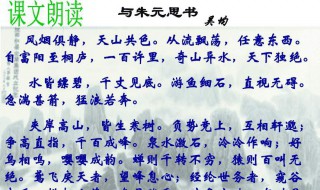 课文朗读
与朱元思书 吴均
风烟俱静，天山共色。从流飘荡，任意东西。
自富阳至桐庐，一百许里，奇山异水，天下独绝。
水皆缥碧，千丈见底。游鱼细石，直视无碍。
急湍甚箭，猛浪若奔。
夹岸高山，皆生寒树。负势竞上，互相轩邈；
争高直指，千百成峰。泉水激石，泠泠作响；好
鸟相鸣，嘤嘤成韵。蝉则千转不穷，猿则百叫无
绝。鸢飞戾天者，望峰息心；经纶世务者，窥谷